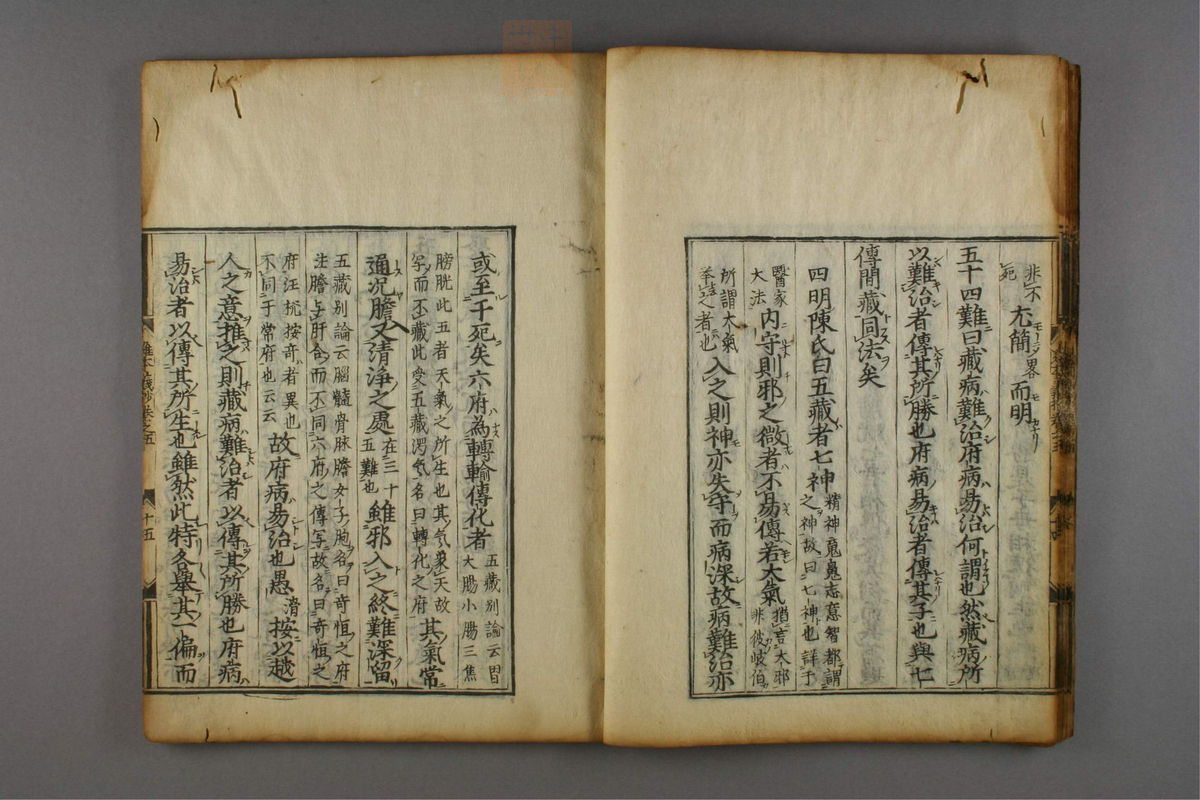 非不
死 尤簡畧而明
五十四難曰藏病難治府病易治何謂也然藏病所
以難治者傳其所勝也府病易治者傳其子也與七
傳間藏同法矣
四明陳氏曰五藏者七神 精神魂魄志意智都謂
之神故曰七神也詳于
醫家
大法 內守則邪之微者不易傳若大氣 猶言大邪
非彼岐伯
所謂大氣
之者也 入之則神亦失守而病深故病難治亦
或至于死矣六府為轉輸傳化者 五藏別論云胃
大腸小腸三焦
膀胱此五者天氣之所生也其氣象天故
写而不藏此受五藏濁氣名曰轉化之府 其氣常
通況膽又清淨之處 在三十
五難也 雖邪入之終難深留
五藏別論云腦髓骨脉膽女子胞名曰奇恒之府
註膽與肝合而不同六府之傳写故名曰奇恒之
府汪机按奇者異也
不同于常府也云云 故府病易治也愚 滑 按以越
人之意推之則藏病難治者以傳其所勝也府病
易治者以傳其所生也雖然此特各舉其一偏而
十五